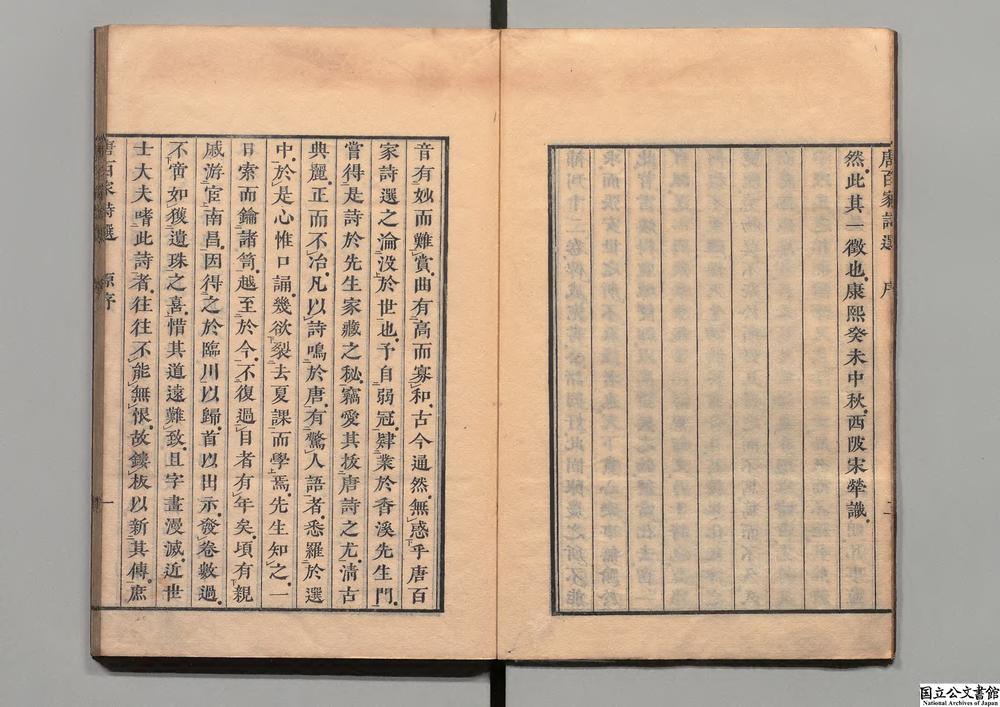 唐百家詩選 序 二
然。此其一徵也。康熙癸未中秋。西陂宋犖識。
音有妙而難賞。曲有高而寡和。古今通然。無惑乎唐百
家詩選之淪没於世也。予自弱冠。肄業於香溪先生門。
嘗得是詩於先生家藏之秘。竊愛其拔唐詩之尤清古
典麗。正而不冶。凡以詩鳴於唐。有驚人語者。悉羅於選
中。於是心惟口誦。幾欲裂去夏課而學焉。先生知之。一
日索而鑰諸笥。越至於今。不復過目者有年矣。頃有親
戚游宦南昌。因得之於臨川以歸。首以出示。發卷數過。
不啻如獲遺珠之喜。惜其道遠難致。且字畫漫滅。近世
士大夫嗜此詩者。往往不能無恨。故鏤板以新其傳。庶
唐百家詩選 原序 一
国立公文書館
National Archives of Japan